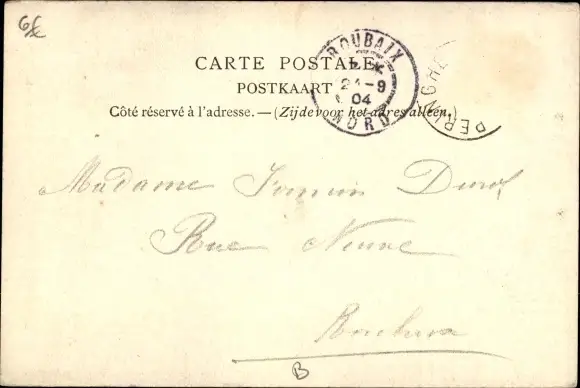 6£
CARTE POSTALE
POSTKAART
Côté réservé à l'adresse. — (Zijde voor het adres alleen.)
ROUBAIX
24-9
04
NORD
Madame
Rue Neuve
Roubaix
B